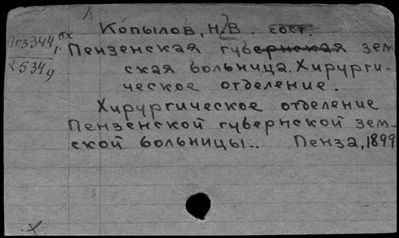 Копылов, Н.В. сост.
Пг3344
Пензенская губернская зем-
К534
9
ская больница. Хирурги-
ческое отделение.
Хирургическое отделение
Пензенской губернской зем-
ской больницы.. Пенза, 1899